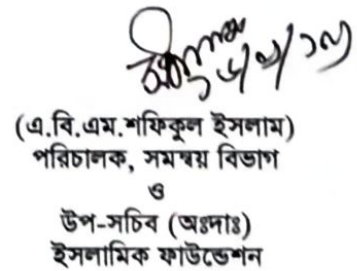 (এ.বি.এম.শফিকুল ইসলাম)
পরিচালক, সমন্বয় বিভাগ
ও
উপ-সচিব (অঃদাঃ)
ইসলামিক ফাউন্ডেশন